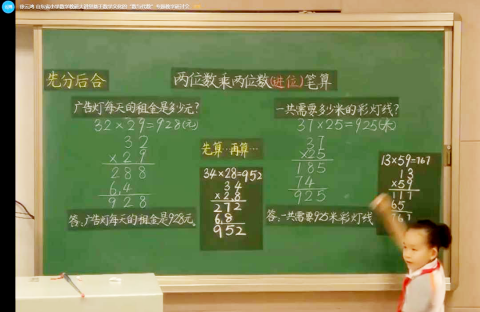 先分后合
两位数乘两位数(进位)笔算
广告灯每天的租金是多少元?
32×29=928(元)
32
×29
288
64
928
答:广告灯每天的租金是928元。
先算…再算…
34×28=952
34
×28
272
68
952
一共需要多少米的彩灯线?
37×25=925(米)
37
×25
185
74
925
答:一共需要925米彩灯线
13×59=767
13
×59
117
65
767